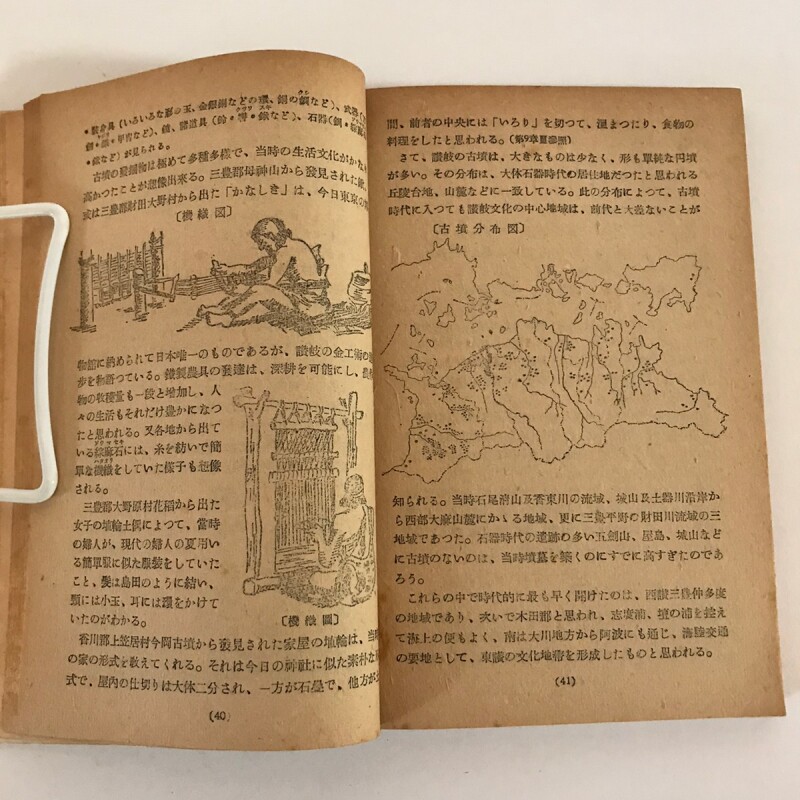 ・装身具(いろいろな形の玉、金銀銅などの環、銅の釧など)、武器(
・甲冑など)、鏡、諸道具(鈴・
・鍬など)が見られる。
古墳の発掘物は極めて多種多様で、当時の生活文化がかな
高かつたことが想像出来る。三豊郡母神山から発見された
式は三豊郡財田大野村から出た「かなしき」は、今日東京の
〔機織図〕
物館に納められて日本唯一のものであるが、讃岐の金工術の
歩を物語つている。鉄製農具の発達は、深耕を可能にし、
物の収穫量も一段と増加し、人
々の生活もそれだけ豊かになつ
たと思われる。又各地から出て
いる紡麻石には、糸を紡いで簡
単な機織をしていた様子も想像
される。
三豊郡大野原村花稲から出た
女子の埴輪土偶によつて、当時
の婦人が、現代の婦人の夏用い
る簡単服に似た服装をしていた
こと、髪は島田のように結い、
頸には小玉、耳には環をかけて
いたのがわかる。
〔機織図〕
香川郡上笠居村今岡古墳から発見された家屋の埴輪は、当
の家の形式を教えてくれる。それは今日の神社に似た素朴な
式で、屋内の仕切りは大体二分され、一方が石畳で、他方が
(40)
間、前者の中央には「いろり」を切つて、温まつたり、食物の
料理をしたと思われる。(第9章参照)
さて、讃岐の古墳は、大きなものは少なく、形も単純な円墳
が多い。その分布は、大体石器時代の居住地だつたと思われる
丘陵台地、山麓などに一致している。此の分布によつて、古墳
時代に入つても讃岐文化の中心地域は、前代と大差ないことが
〔古墳分布図〕
知られる。当時石尾清山及香東川の流域、城山及土器川沿岸か
ら西部大麻山麓にかゝる地域、更に三豊平野の財田川流域の三
地域であつた。石器時代の遺跡の多い五剣山、屋島、城山など
に古墳のないのは、当時墳墓を築くのにすでに高すぎたのであ
ろう。
これらの中で時代的に最も早く開けたのは、西讃三豊仲多度
の地域であり、次いで木田郡と思われ、志度浦、壇の浦を控え
て海上の便もよく、南は大川地方から阿波にも通じ、海陸交通
の要地として、東讃の文化地帯を形成したものと思われる。
(41)